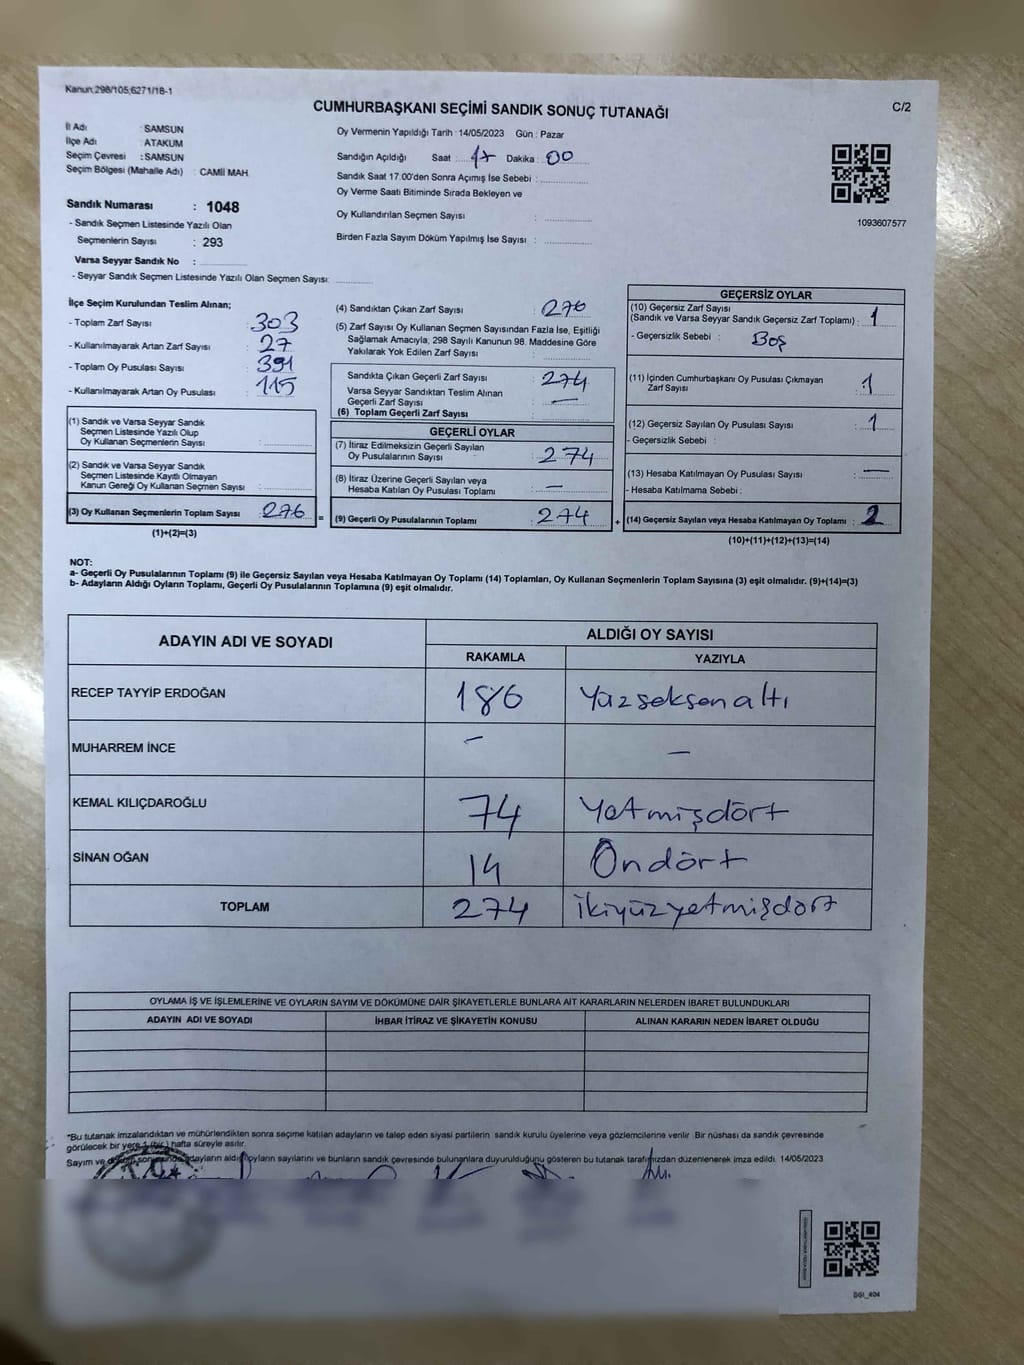 Kanun;298/105;6271/18-1
C/2
CUMHURBAŞKANI SEÇİMİ SANDIK SONUÇ TUTANAĞI
İl Adı : SAMSUN
İlçe Adı : ATAKUM
Seçim Çevresi : SAMSUN
Seçim Bölgesi (Mahalle Adı) : CAMİİ MAH.
Sandık Numarası : 1048
- Sandık Seçmen Listesinde Yazılı Olan
Seçmenlerin Sayısı : 293
Varsa Seyyar Sandık No :
- Seyyar Sandık Seçmen Listesinde Yazılı Olan Seçmen Sayısı:
Oy Vermenin Yapıldığı Tarih : 14/05/2023 Gün : Pazar
Sandığın Açıldığı Saat : 17 Dakika : 00
Sandık Saat 17.00'den Sonra Açımış İse Sebebi :
Oy Verme Saati Bitiminde Sırada Bekleyen ve
Oy Kullandırılan Seçmen Sayısı :
Birden Fazla Sayım Döküm Yapılmış İse Sayısı :
1093607577
İlçe Seçim Kurulundan Teslim Alınan;
- Toplam Zarf Sayısı : 303
- Kullanılmayarak Artan Zarf Sayısı : 27
- Toplam Oy Pusulası Sayısı : 391
- Kullanılmayarak Artan Oy Pusulası : 115
(1) Sandık ve Varsa Seyyar Sandık
Seçmen Listesinde Yazılı Olup
Oy Kullanan Seçmenlerin Sayısı :
(2) Sandık ve Varsa Seyyar Sandık
Seçmen Listesinde Kayıtlı Olmayan
Kanun Gereği Oy Kullanan Seçmen Sayısı :
(3) Oy Kullanan Seçmenlerin Toplam Sayısı : 276 =
(1)+(2)=(3)
(4) Sandıktan Çıkan Zarf Sayısı : 276
(5) Zarf Sayısı Oy Kullanan Seçmen Sayısından Fazla İse, Eşitliği
Sağlamak Amacıyla, 298 Sayılı Kanunun 98. Maddesine Göre
Yakılarak Yok Edilen Zarf Sayısı :
Sandıkta Çıkan Geçerli Zarf Sayısı : 274
Varsa Seyyar Sandıktan Teslim Alınan
Geçerli Zarf Sayısı : —
(6) Toplam Geçerli Zarf Sayısı :
GEÇERLİ OYLAR
(7) İtiraz Edilmeksizin Geçerli Sayılan
Oy Pusulalarının Sayısı : 274
(8) İtiraz Üzerine Geçerli Sayılan veya
Hesaba Katılan Oy Pusulası Toplamı : —
(9) Geçerli Oy Pusulalarının Toplamı : 274 +
GEÇERSİZ OYLAR
(10) Geçersiz Zarf Sayısı
(Sandık ve Varsa Seyyar Sandık Geçersiz Zarf Toplamı) : 1
- Geçersizlik Sebebi : Boş
(11) İçinden Cumhurbaşkanı Oy Pusulası Çıkmayan
Zarf Sayısı : 1
(12) Geçersiz Sayılan Oy Pusulası Sayısı : 1
- Geçersizlik Sebebi :
(13) Hesaba Katılmayan Oy Pusulası Sayısı : —
- Hesaba Katılmama Sebebi :
(14) Geçersiz Sayılan veya Hesaba Katılmayan Oy Toplamı : 2
(10)+(11)+(12)+(13)=(14)
NOT:
a- Geçerli Oy Pusulalarının Toplamı (9) ile Geçersiz Sayılan veya Hesaba Katılmayan Oy Toplamı (14) Toplamları, Oy Kullanan Seçmenlerin Toplam Sayısına (3) eşit olmalıdır. (9)+(14)=(3)
b- Adayların Aldığı Oyların Toplamı, Geçerli Oy Pusulalarının Toplamına (9) eşit olmalıdır.
ADAYIN ADI VE SOYADI
ALDIĞI OY SAYISI
RAKAMLA YAZIYLA
RECEP TAYYİP ERDOĞAN 186 Yüzseksenaltı
MUHARREM İNCE – —
KEMAL KILIÇDAROĞLU 74 Yetmişdört
SİNAN OĞAN 14 Ondört
TOPLAM 274 ikiyüzyetmişdört
OYLAMA İŞ VE İŞLEMLERİNE VE OYLARIN SAYIM VE DÖKÜMÜNE DAİR ŞİKAYETLERLE BUNLARA AİT KARARLARIN NELERDEN İBARET BULUNDUKLARI
ADAYIN ADI VE SOYADI İHBAR İTİRAZ VE ŞİKAYETİN KONUSU ALINAN KARARIN NEDEN İBARET OLDUĞU
*Bu tutanak imzalandıktan ve mühürlendikten sonra seçime katılan adayların ve talep eden siyasi partilerin sandık kurulu üyelerine veya gözlemcilerine verilir. Bir nüshası da sandık çevresinde
görülecek bir yere 1 (bir) hafta süreyle asılır.
Sayım ve döküm sonucunda adayların aldığı oyların sayılarını ve bunların sandık çevresinde bulunanlara duyurulduğunu gösteren bu tutanak tarafımızdan düzenlenerek imza edildi. 14/05/2023